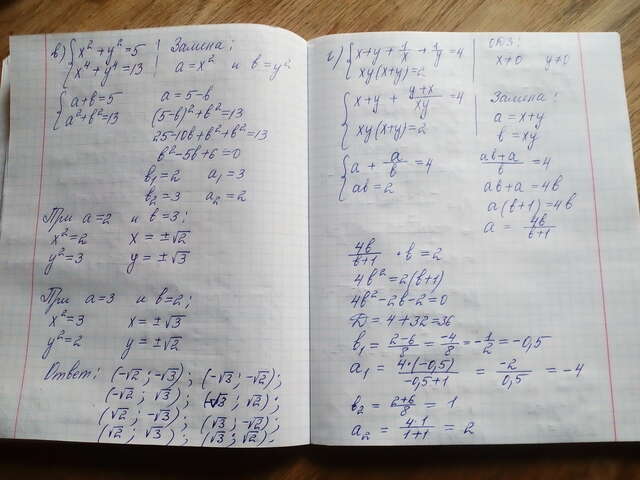 в) { x² + y² = 5
x⁴ + y⁴ = 13
Замена:
a = x² и b = y²
{ a + b = 5
a² + b² = 13
a = 5 - b
(5-b)² + b² = 13
25 - 10b + b² + b² = 13
b² - 5b + 6 = 0
b₁ = 2 a₁ = 3
b₂ = 3 a₂ = 2
При a = 2 и b = 3:
x² = 2 x = ±√2
y² = 3 y = ±√3
При a = 3 и b = 2:
x² = 3 x = ±√3
y² = 2 y = ±√2
Ответ: (-√2; -√3); (-√3; -√2);
(-√2; √3); (-√3; √2);
(√2; -√3); (√3; -√2);
(√2; √3); (√3; √2);
г) { x + y + 1/x + 1/y = 4
xy(x+y) = 2
ОДЗ:
x≠0 y≠0
{ x + y + (y+x)/xy = 4
xy(x+y) = 2
Замена:
a = x + y
b = xy
{ a + a/b = 4
ab = 2
(ab+a)/b = 4
ab + a = 4b
a(b+1) = 4b
a = 4b/(b+1)
4b/(b+1) · b = 2
4b² = 2(b+1)
4b² - 2b - 2 = 0
D = 4 + 32 = 36
b₁ = (2-6)/8 = -4/8 = -1/2 = -0,5
a₁ = 4·(-0,5)/(-0,5+1) = -2/0,5 = -4
b₂ = (2+6)/8 = 1
a₂ = 4·1/(1+1) = 2